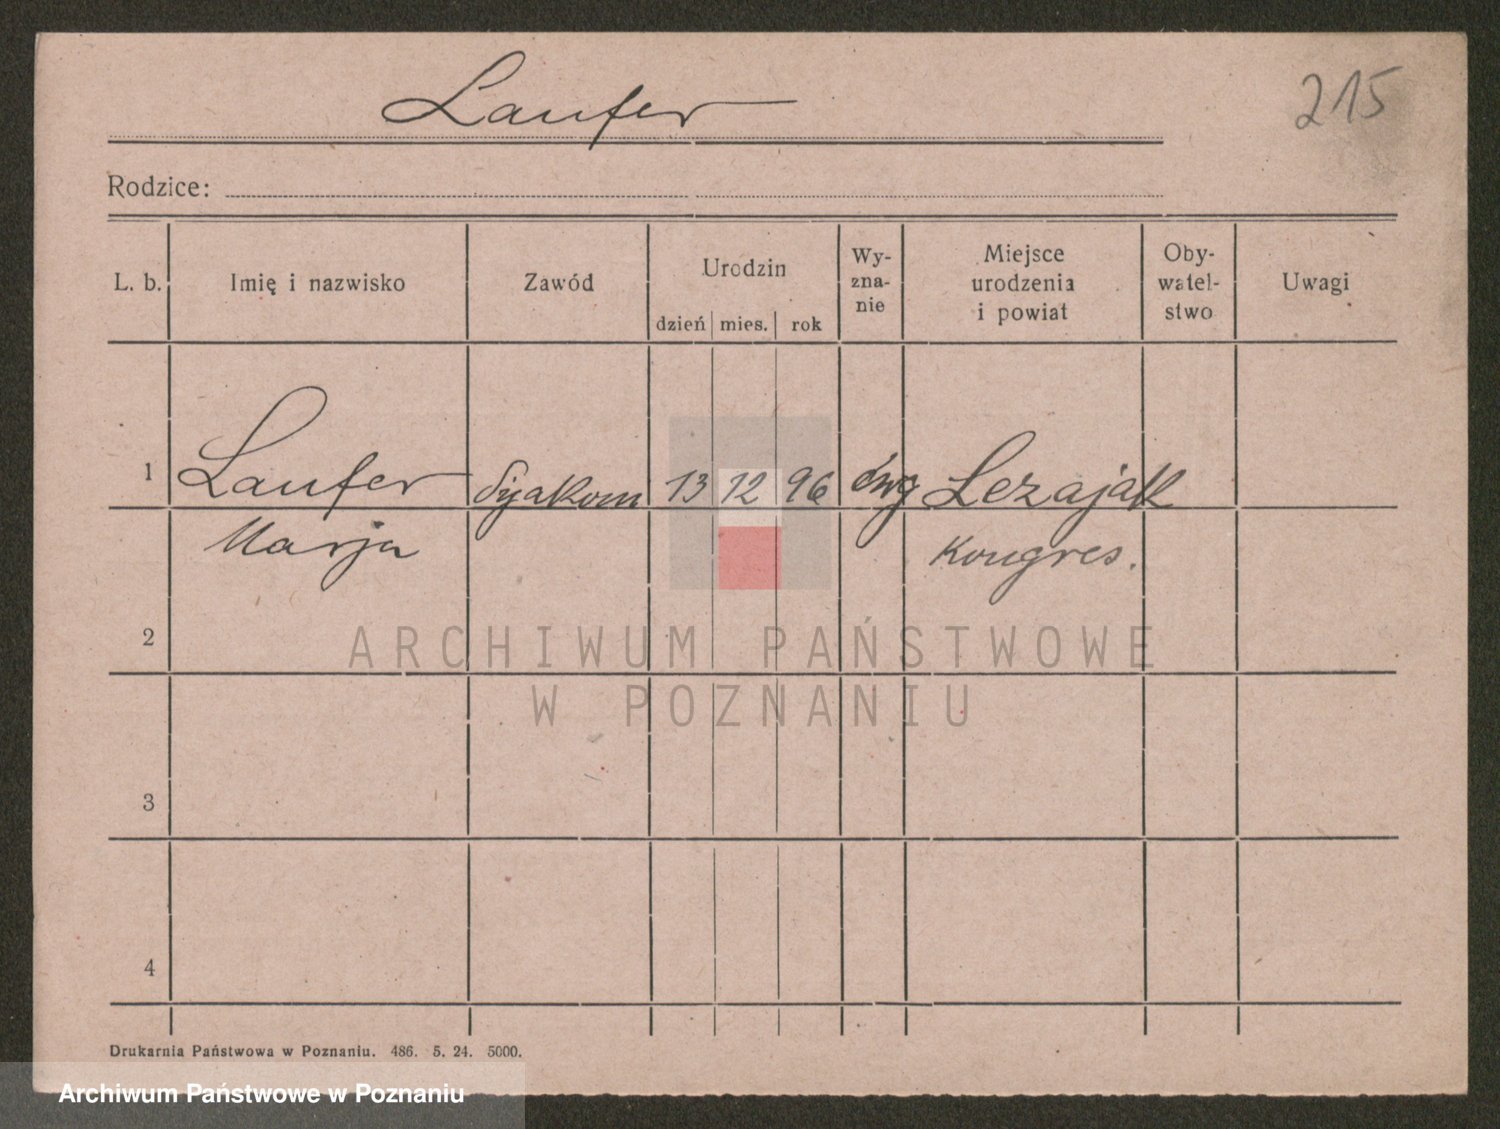 Laufer
215
Rodzice:
L. b.
Imię i nazwisko
Zawód
Urodzin
dzień mies. rok
Wy-
zna-
nie
Miejsce
urodzenia
i powiat
Oby-
watel-
stwo
Uwagi
1 Laufer dyakom 13 12 96 ewg Lezajak
Marja Kongres.
2
3
4
ARCHIWUM PAŃSTWOWE
W POZNANIU
Drukarnia Państwowa w Poznaniu. 486. 5. 24. 5000.
Archiwum Państwowe w Poznaniu